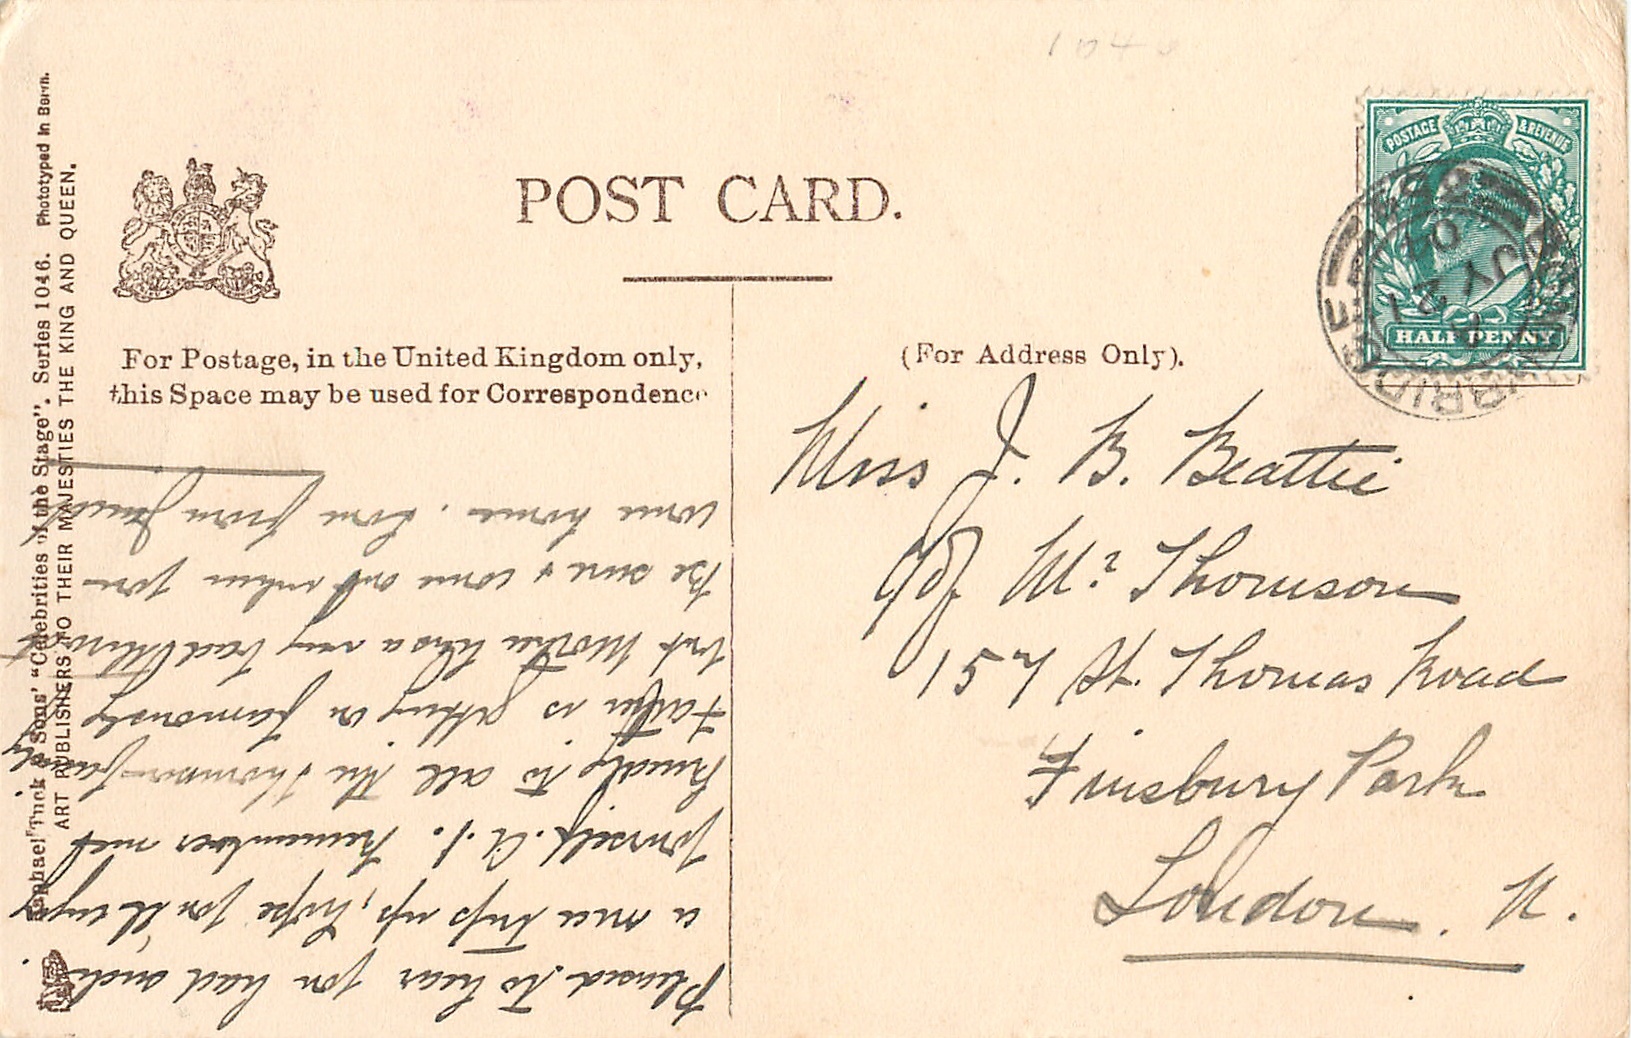 POST CARD.
For Postage, in the United Kingdom only,
this Space may be used for Correspondence
(For Address Only).
POSTAGE & REVENUE
HALFPENNY
JY 21
04
Miss J. B. Beattie
c/o Mr Thomson
157 St. Thomas Road
Finsbury Park
London. N.
Pleased to hear you had such
a nice trip up, hope you'll enjoy
yourself A.1. Remember me
kindly to all the Thomson family
Father is getting on famously
but Mother has a very bad throat
be sure & come out when you
come home. Love from
Raphael Tuck & Sons' "Celebrities of the Stage". Series 1046. Phototyped in Berlin.
ART PUBLISHERS TO THEIR MAJESTIES THE KING AND QUEEN.
104